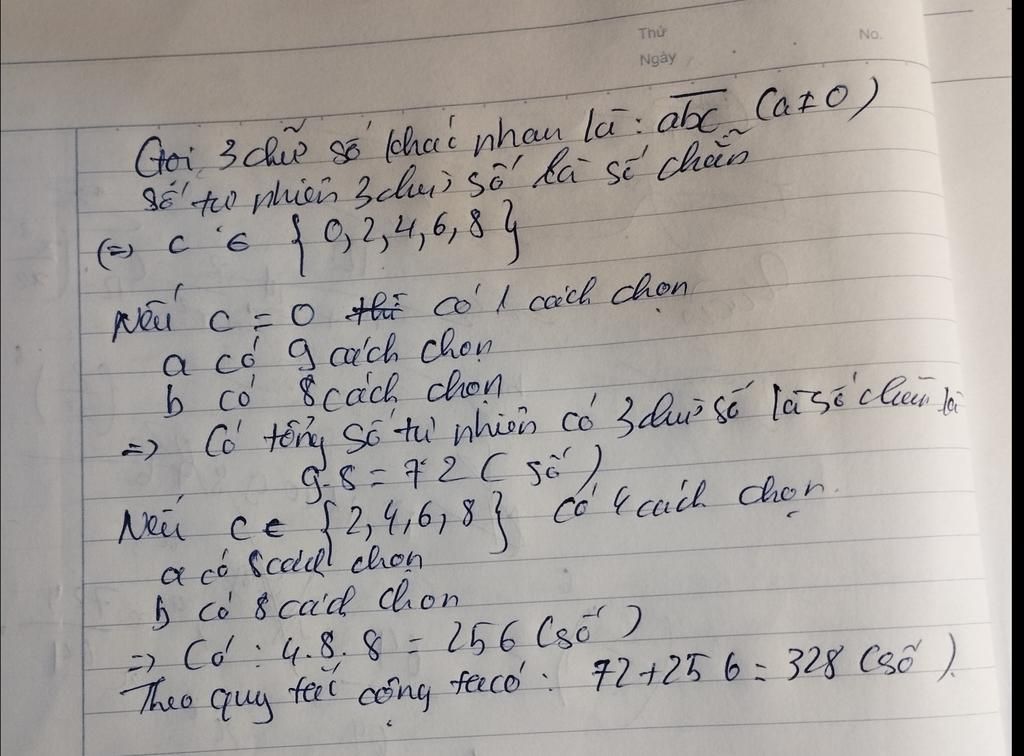 Thứ
No.
Ngày
Gọi 3 chữ số khác nhau là : abc (a ≠ 0)
số tự nhiên 3 chữ số là số chẵn
(=) c ∈ { 0, 2, 4, 6, 8 }
Nếu c = 0 thì có 1 cách chọn
a có 9 cách chọn
b có 8 cách chọn
=> Có tổng số tự nhiên có 3 chữ số là số chẵn là
9.8 = 72 ( số )
Nếu c ∈ { 2, 4, 6, 8 } có 4 cách chọn.
a có 8 cách chọn
b có 8 cách chọn
=> Có : 4.8.8 = 256 (số)
Theo quy tắc cộng ta có : 72+256 = 328 (số).